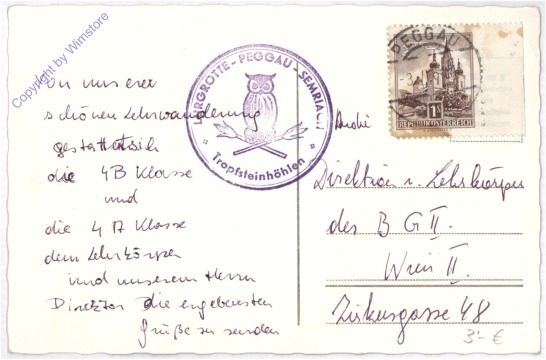 Copyright by Wimstore
Von unserer
schönen Lehrwanderung
gestatten sich
die 4B Klasse
und
die 4A Klasse
dem Lehrkörper
und unserem Herrn
Direktor die ergebensten
Grüße zu senden
LURGROTTE-PEGGAU-SEMRIACH
* Tropfsteinhöhlen *
PEGGAU
1S
REPUBLIK ÖSTERREICH
An die
Direktion u. Lehrkörper
des B G II.
Wien II.
Zirkusgasse 48
3.- €